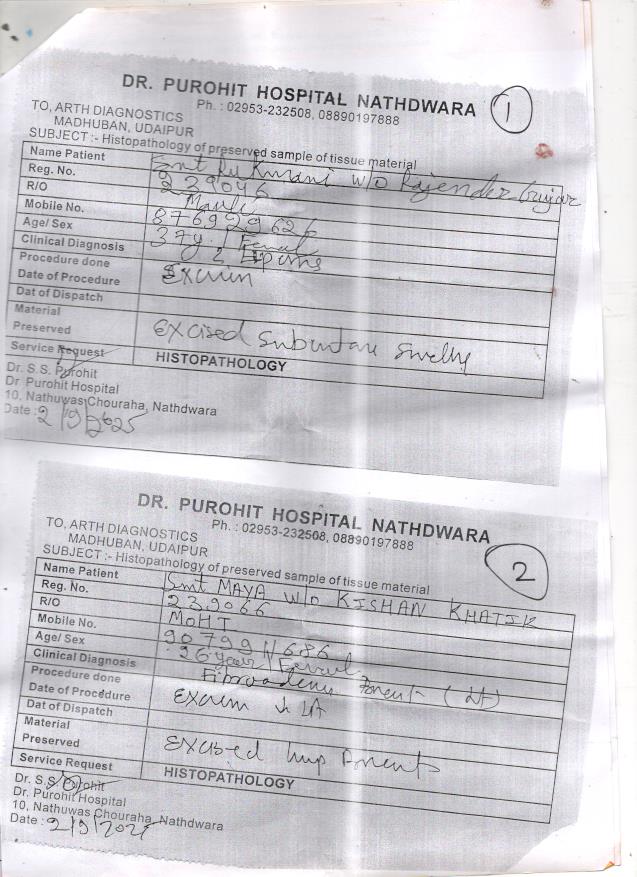 DR. PUROHIT HOSPITAL NATHDWARA
1
Ph. : 02953-232508, 08890197888
TO, ARTH DIAGNOSTICS
MADHUBAN, UDAIPUR
SUBJECT :- Histopathology of preserved sample of tissue material
Name Patient Smt Rukmani w/o Rajender Gurjar
Reg. No. 239046
R/O Mauli
Mobile No. 876929626
Age/ Sex 37y / Female
Clinical Diagnosis
Procedure done Excision
Date of Procedure
Dat of Dispatch
Material
Preserved Excised Swelling
Service Request HISTOPATHOLOGY
Dr. S.S. Purohit
Dr Purohit Hospital
10, Nathuwas Chouraha, Nathdwara
Date : 2/9/2025
DR. PUROHIT HOSPITAL NATHDWARA
Ph. : 02953-232508, 08890197888
2
TO, ARTH DIAGNOSTICS
MADHUBAN, UDAIPUR
SUBJECT :- Histopathology of preserved sample of tissue material
Name Patient Smt MAYA w/o KISHAN KHATIK
Reg. No. 239066
R/O MOHT
Mobile No.
Age/ Sex 26 year / Female
Clinical Diagnosis Fibroadenoma Breast (Lt)
Procedure done
Date of Procedure Excision LA
Dat of Dispatch
Material
Preserved Excised lump Breast
Service Request HISTOPATHOLOGY
Dr. S.S. Purohit
Dr. Purohit Hospital
10, Nathuwas Chouraha, Nathdwara
Date : 2/9/2025